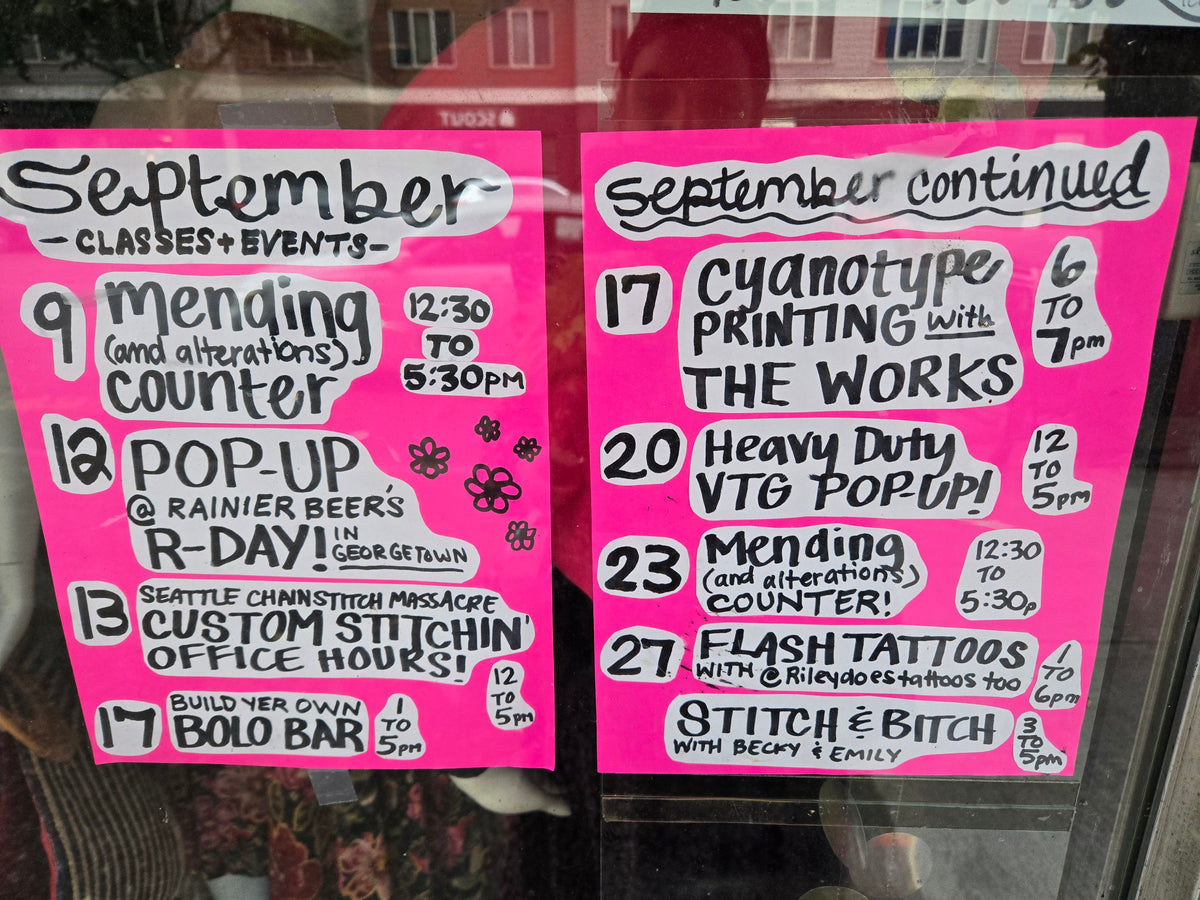 September
- CLASSES + EVENTS -
9
mending
(and alterations)
counter
12:30
TO
5:30PM
12
POP-UP
@ RAINIER BEER'S
R-DAY! IN
GEORGETOWN
13
SEATTLE CHAINSTITCH MASSACRE
CUSTOM STITCHIN'
OFFICE HOURS!
12
TO
5pm
17
BUILD YER OWN
BOLO BAR
1
TO
5pm
September continued
17
Cyanotype
PRINTING with
THE WORKS
6
TO
7pm
20
Heavy Duty
VTG POP-UP!
12
TO
5pm
23
Mending
(and alterations)
COUNTER!
12:30
TO
5:30p
27
FLASH TATTOOS
WITH @Rileydoestattoos too
1
TO
6pm
STITCH & BITCH
WITH BECKY & EMILY
3
TO
5pm
SCOUT